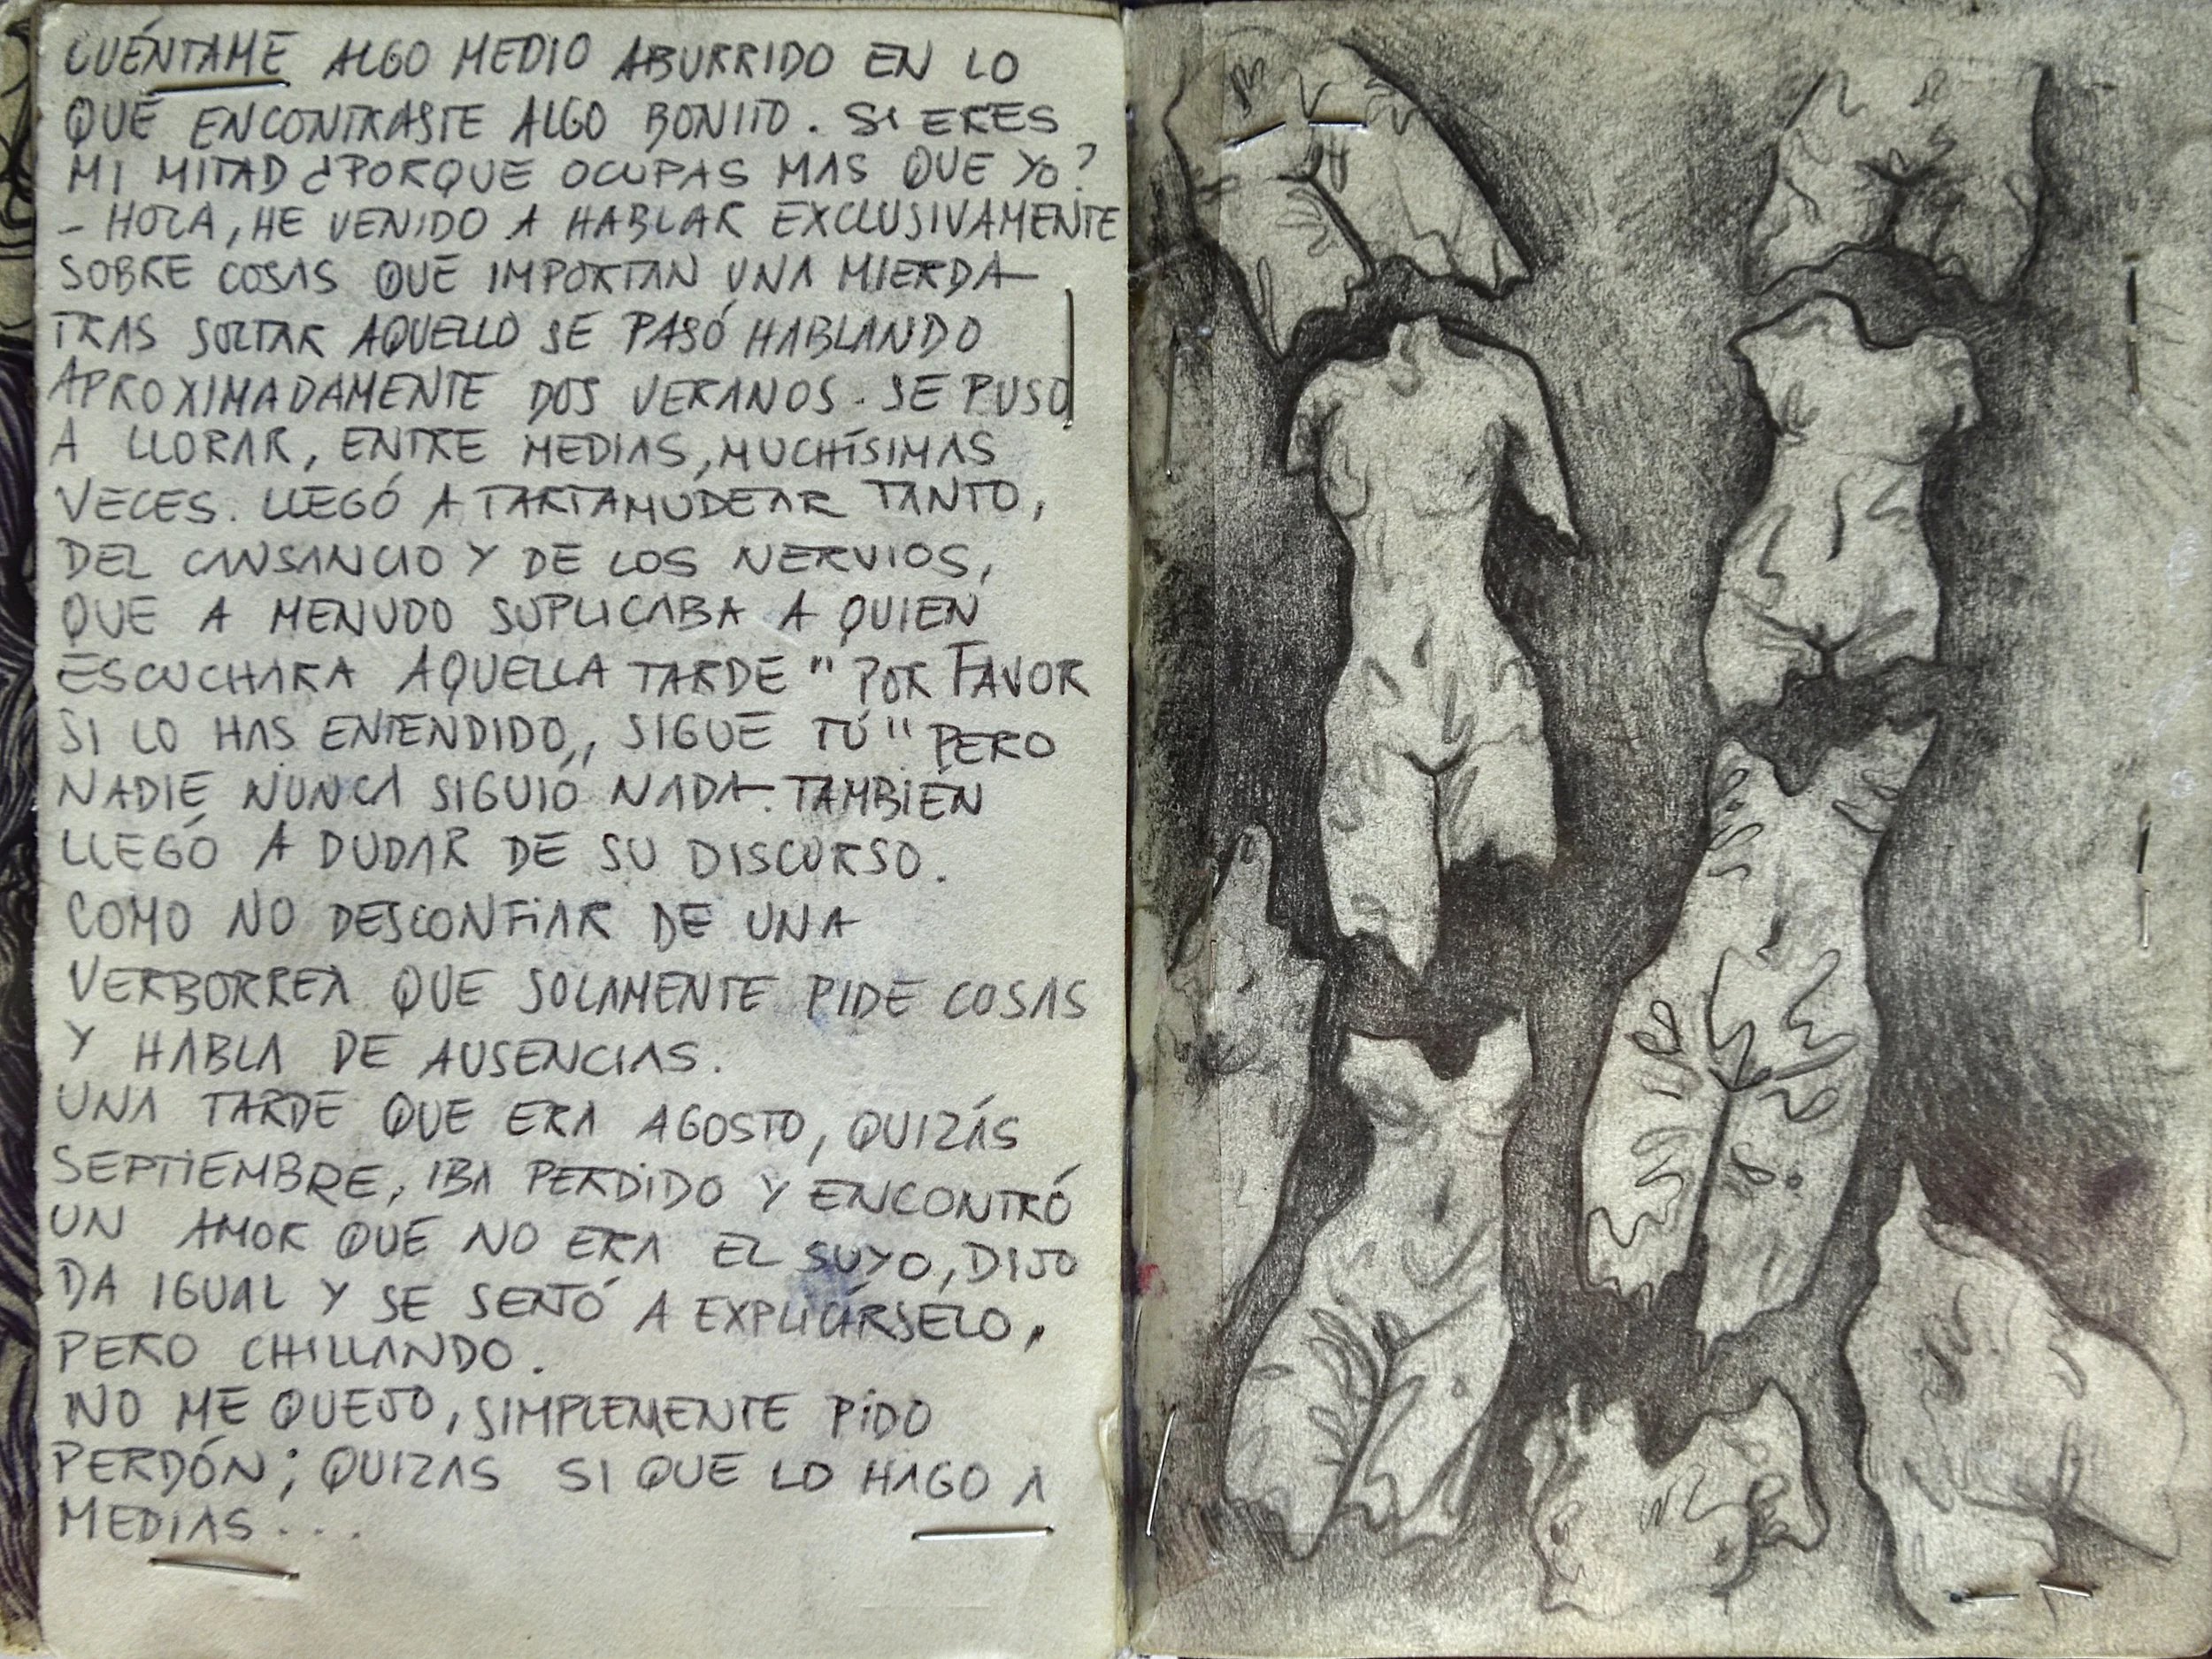 CUÉNTAME ALGO MEDIO ABURRIDO EN LO
QUE ENCONTRASTE ALGO BONITO. SI ERES
MI MITAD ¿PORQUE OCUPAS MAS QUE YO?
- HOLA, HE VENIDO A HABLAR EXCLUSIVAMENTE
SOBRE COSAS QUE IMPORTAN UNA MIERDA
TRAS SOLTAR AQUELLO SE PASÓ HABLANDO
APROXIMADAMENTE DOS VERANOS. SE PUSO
A LLORAR, ENTRE MEDIAS, MUCHÍSIMAS
VECES. LLEGÓ A TARTAMUDEAR TANTO,
DEL CANSANCIO Y DE LOS NERVIOS,
QUE A MENUDO SUPLICABA A QUIEN
ESCUCHARA AQUELLA TARDE "POR FAVOR
SI LO HAS ENTENDIDO, SIGUE TÚ" PERO
NADIE NUNCA SIGUIÓ NADA. TAMBIÉN
LLEGÓ A DUDAR DE SU DISCURSO.
COMO NO DESCONFIAR DE UNA
VERBORREA QUE SOLAMENTE PIDE COSAS
Y HABLA DE AUSENCIAS.
UNA TARDE QUE ERA AGOSTO, QUIZÁS
SEPTIEMBRE, IBA PERDIDO Y ENCONTRÓ
UN AMOR QUE NO ERA EL SUYO, DIJO
DA IGUAL Y SE SENTÓ A EXPLICÁRSELO,
PERO CHILLANDO.
NO ME QUEJO, SIMPLEMENTE PIDO
PERDÓN; QUIZAS SI QUE LO HAGO A
MEDIAS...